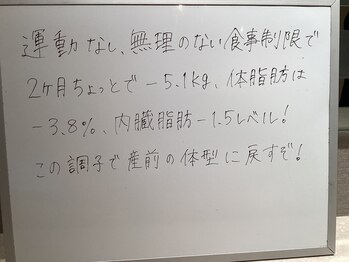 運動なし、無理のない食事制限で
2ヶ月ちょっとで-5.1kg、体脂肪は
-3.8%、内臓脂肪-1.5レベル!
この調子で産前の体型に戻すぞ!